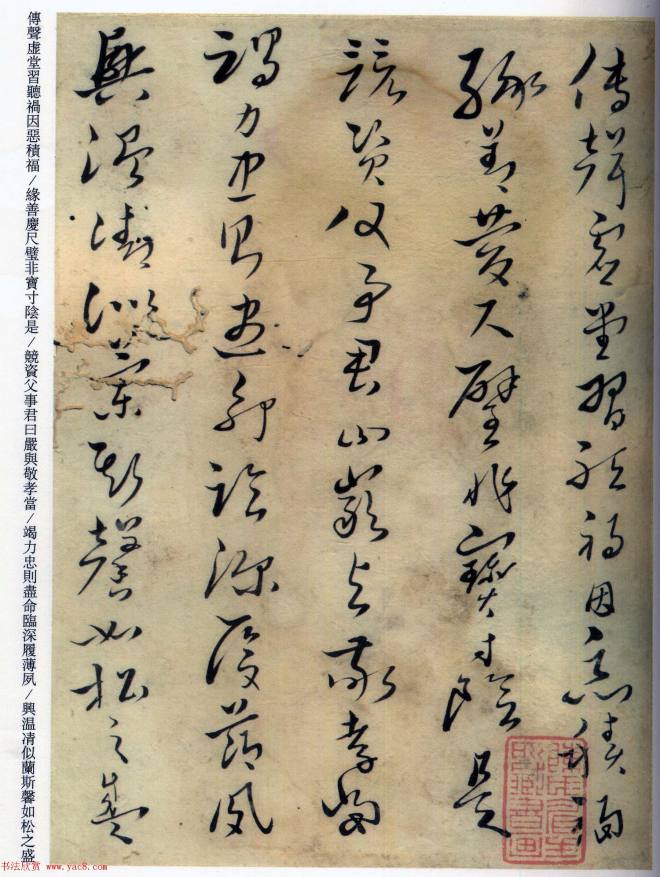 傳聲虛堂習聽禍因惡積福
緣善慶尺璧非寶寸陰是
競資父事君曰嚴與敬孝當
竭力忠則盡命臨深履薄夙
興温凊似蘭斯馨如松之盛
傳聲虛堂習聽禍因惡積福/緣善慶尺璧非寶寸陰是/競資父事君曰嚴與敬孝當/竭力忠則盡命臨深履薄夙/興温凊似蘭斯馨如松之盛
书法欣赏 www.yac8.com